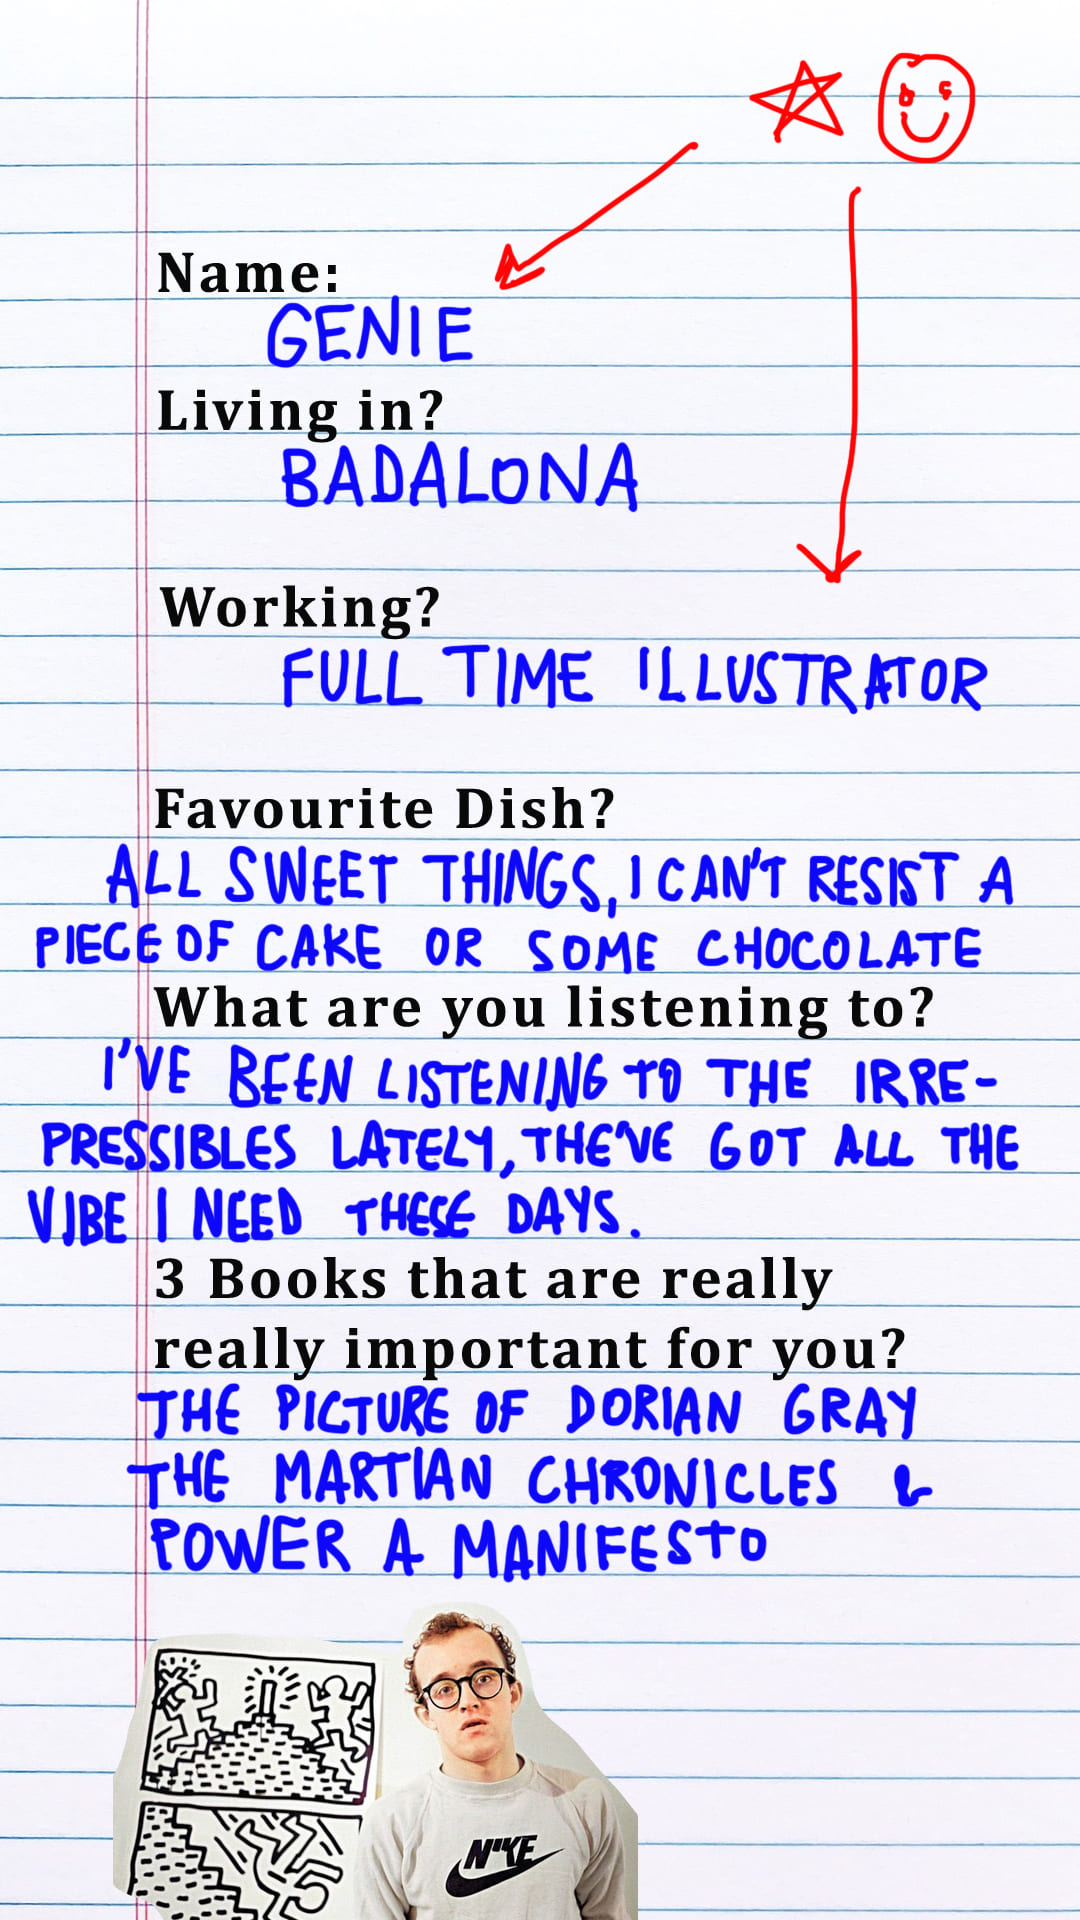 Name:
GENIE
Living in?
BADALONA
Working?
FULL TIME ILLUSTRATOR
Favourite Dish?
ALL SWEET THINGS, I CAN'T RESIST A
PIECE OF CAKE OR SOME CHOCOLATE
What are you listening to?
I'VE BEEN LISTENING TO THE IRRE-
PRESSIBLES LATELY, THE'VE GOT ALL THE
VIBE I NEED THESE DAYS.
3 Books that are really
really important for you?
THE PICTURE OF DORIAN GRAY
THE MARTIAN CHRONICLES &
POWER A MANIFESTO
NIKE